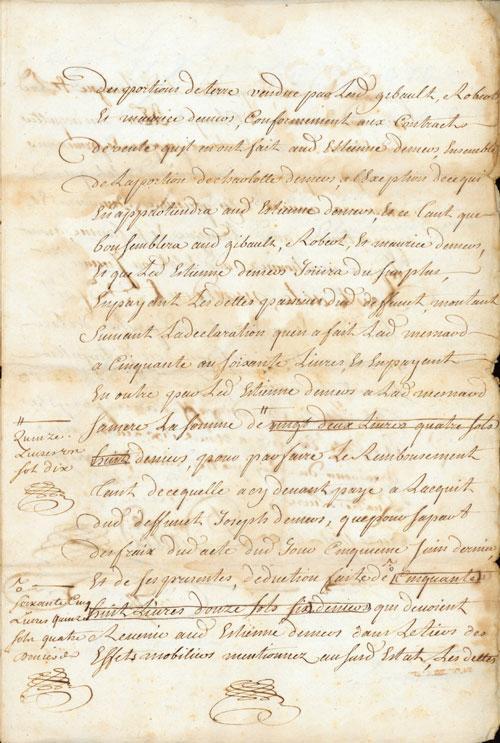 Des portions de terre vendue par Led. gibault, Robert
Et maurice demers, Conformement aux Contracts
De vente quil en ont fait aud. Estienne demers, Ensemble
De La portion de charlotte demers, a L'Exception de ce qui
En appartiendra aud. Estienne demers Et ce tant que
bon semblera aud. gibault, Robert, Et maurice demers,
Et que Led. Estienne demers Joüira du surplus,
En payant Les dettes passives dud. deffunct, montant
Suivant La declaration quen a fait Lad. mesnard
a Cinquante ou soixante Livres, Et En payant
En outre par Led. Estienne demers a Lad. mesnard
Sa mere La somme de vingt deux Livres quatre sols
huit deniers, pour parfaire Le Remboursement
tant de ce quelle a cy devant payé a Lacquit
dud. deffunct Joseph demers, que pour sa part
des fraix dud. acte dud. Jour Cinquieme Juin dernier
Et de ses presentes, deduction faite de Cinquante
huit Livres douze sols six deniers qui devoient
Revenir aud. Estienne demers dans Le tiers des
Effets mobiliers mentionnez au susd. Estat, Les dettes
Quinze
Livres un
sol dix
soixante Cinq
Livres quinze
sols quatre
deniers